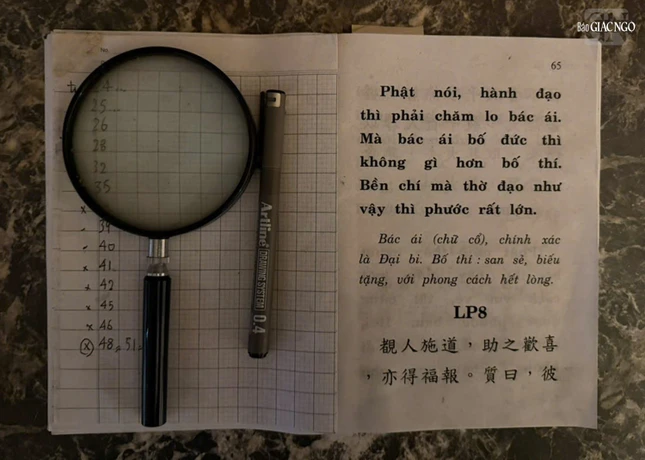 Báo GIÁC NGỘ
24
25
26
28
32
35
x
- 39
- 40
x 41
x 42
x 45
x 46
(x) 48 = 51 =
Artline DRAWING SYSTEM 0.4
65
Phật nói, hành đạo
thì phải chăm lo bác ái.
Mà bác ái bố đức thì
không gì hơn bố thí.
Bền chí mà thờ đạo như
vậy thì phước rất lớn.
Bác ái (chữ cổ), chính xác
là Đại bi. Bố thí : san sẻ, biếu
tặng, với phong cách hết lòng.
LP8
覩人施道，助之歡喜
，亦得福報。質曰，彼